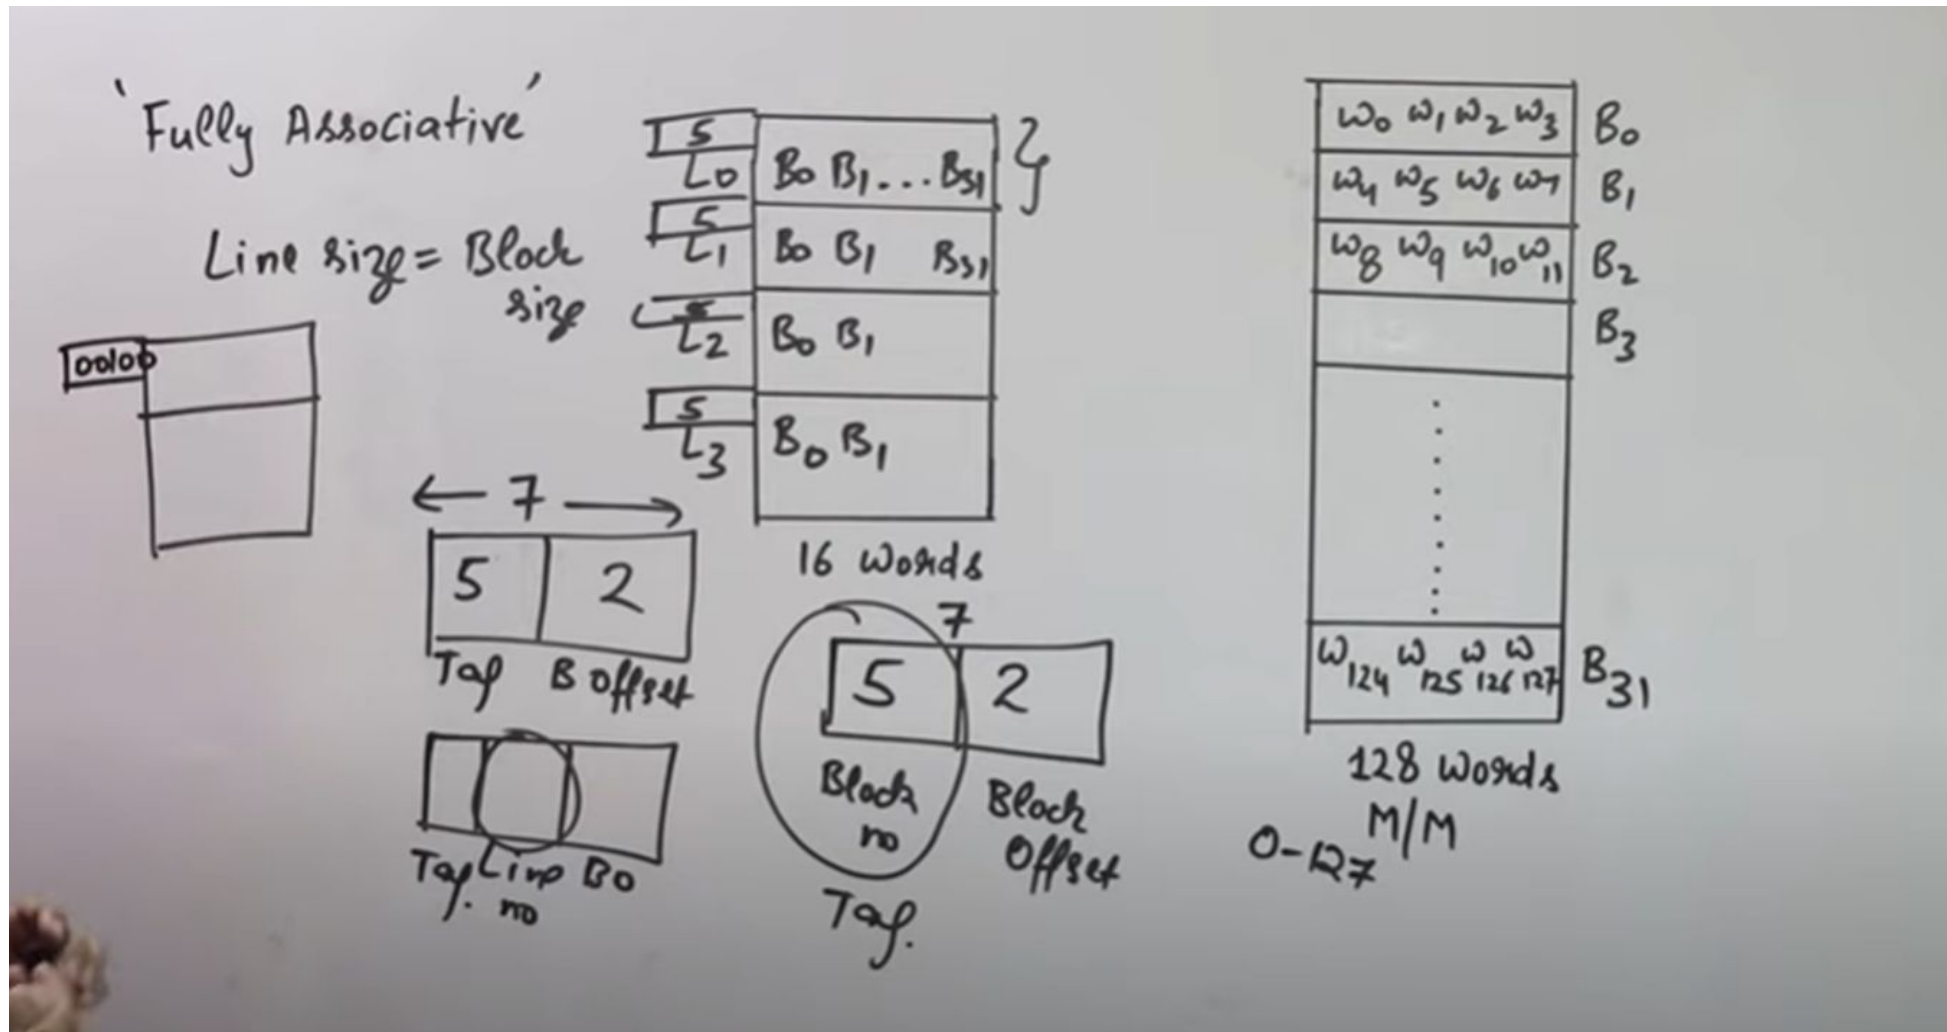 'Fully Associative'
Line size = Block
size
00100
5
L0 B0 B1 ... B31
5
L1 B0 B1 B31
5
L2 B0 B1
5
L3 B0 B1
16 words
7
5 2
Tag B Offset
Tag. Line no BO
7
5 2
Block no Block Offset
Tag.
W0 W1 W2 W3 B0
W4 W5 W6 W7 B1
W8 W9 W10 W11 B2
B3
W124 W125 W126 W127 B31
128 words
M/M
0-127